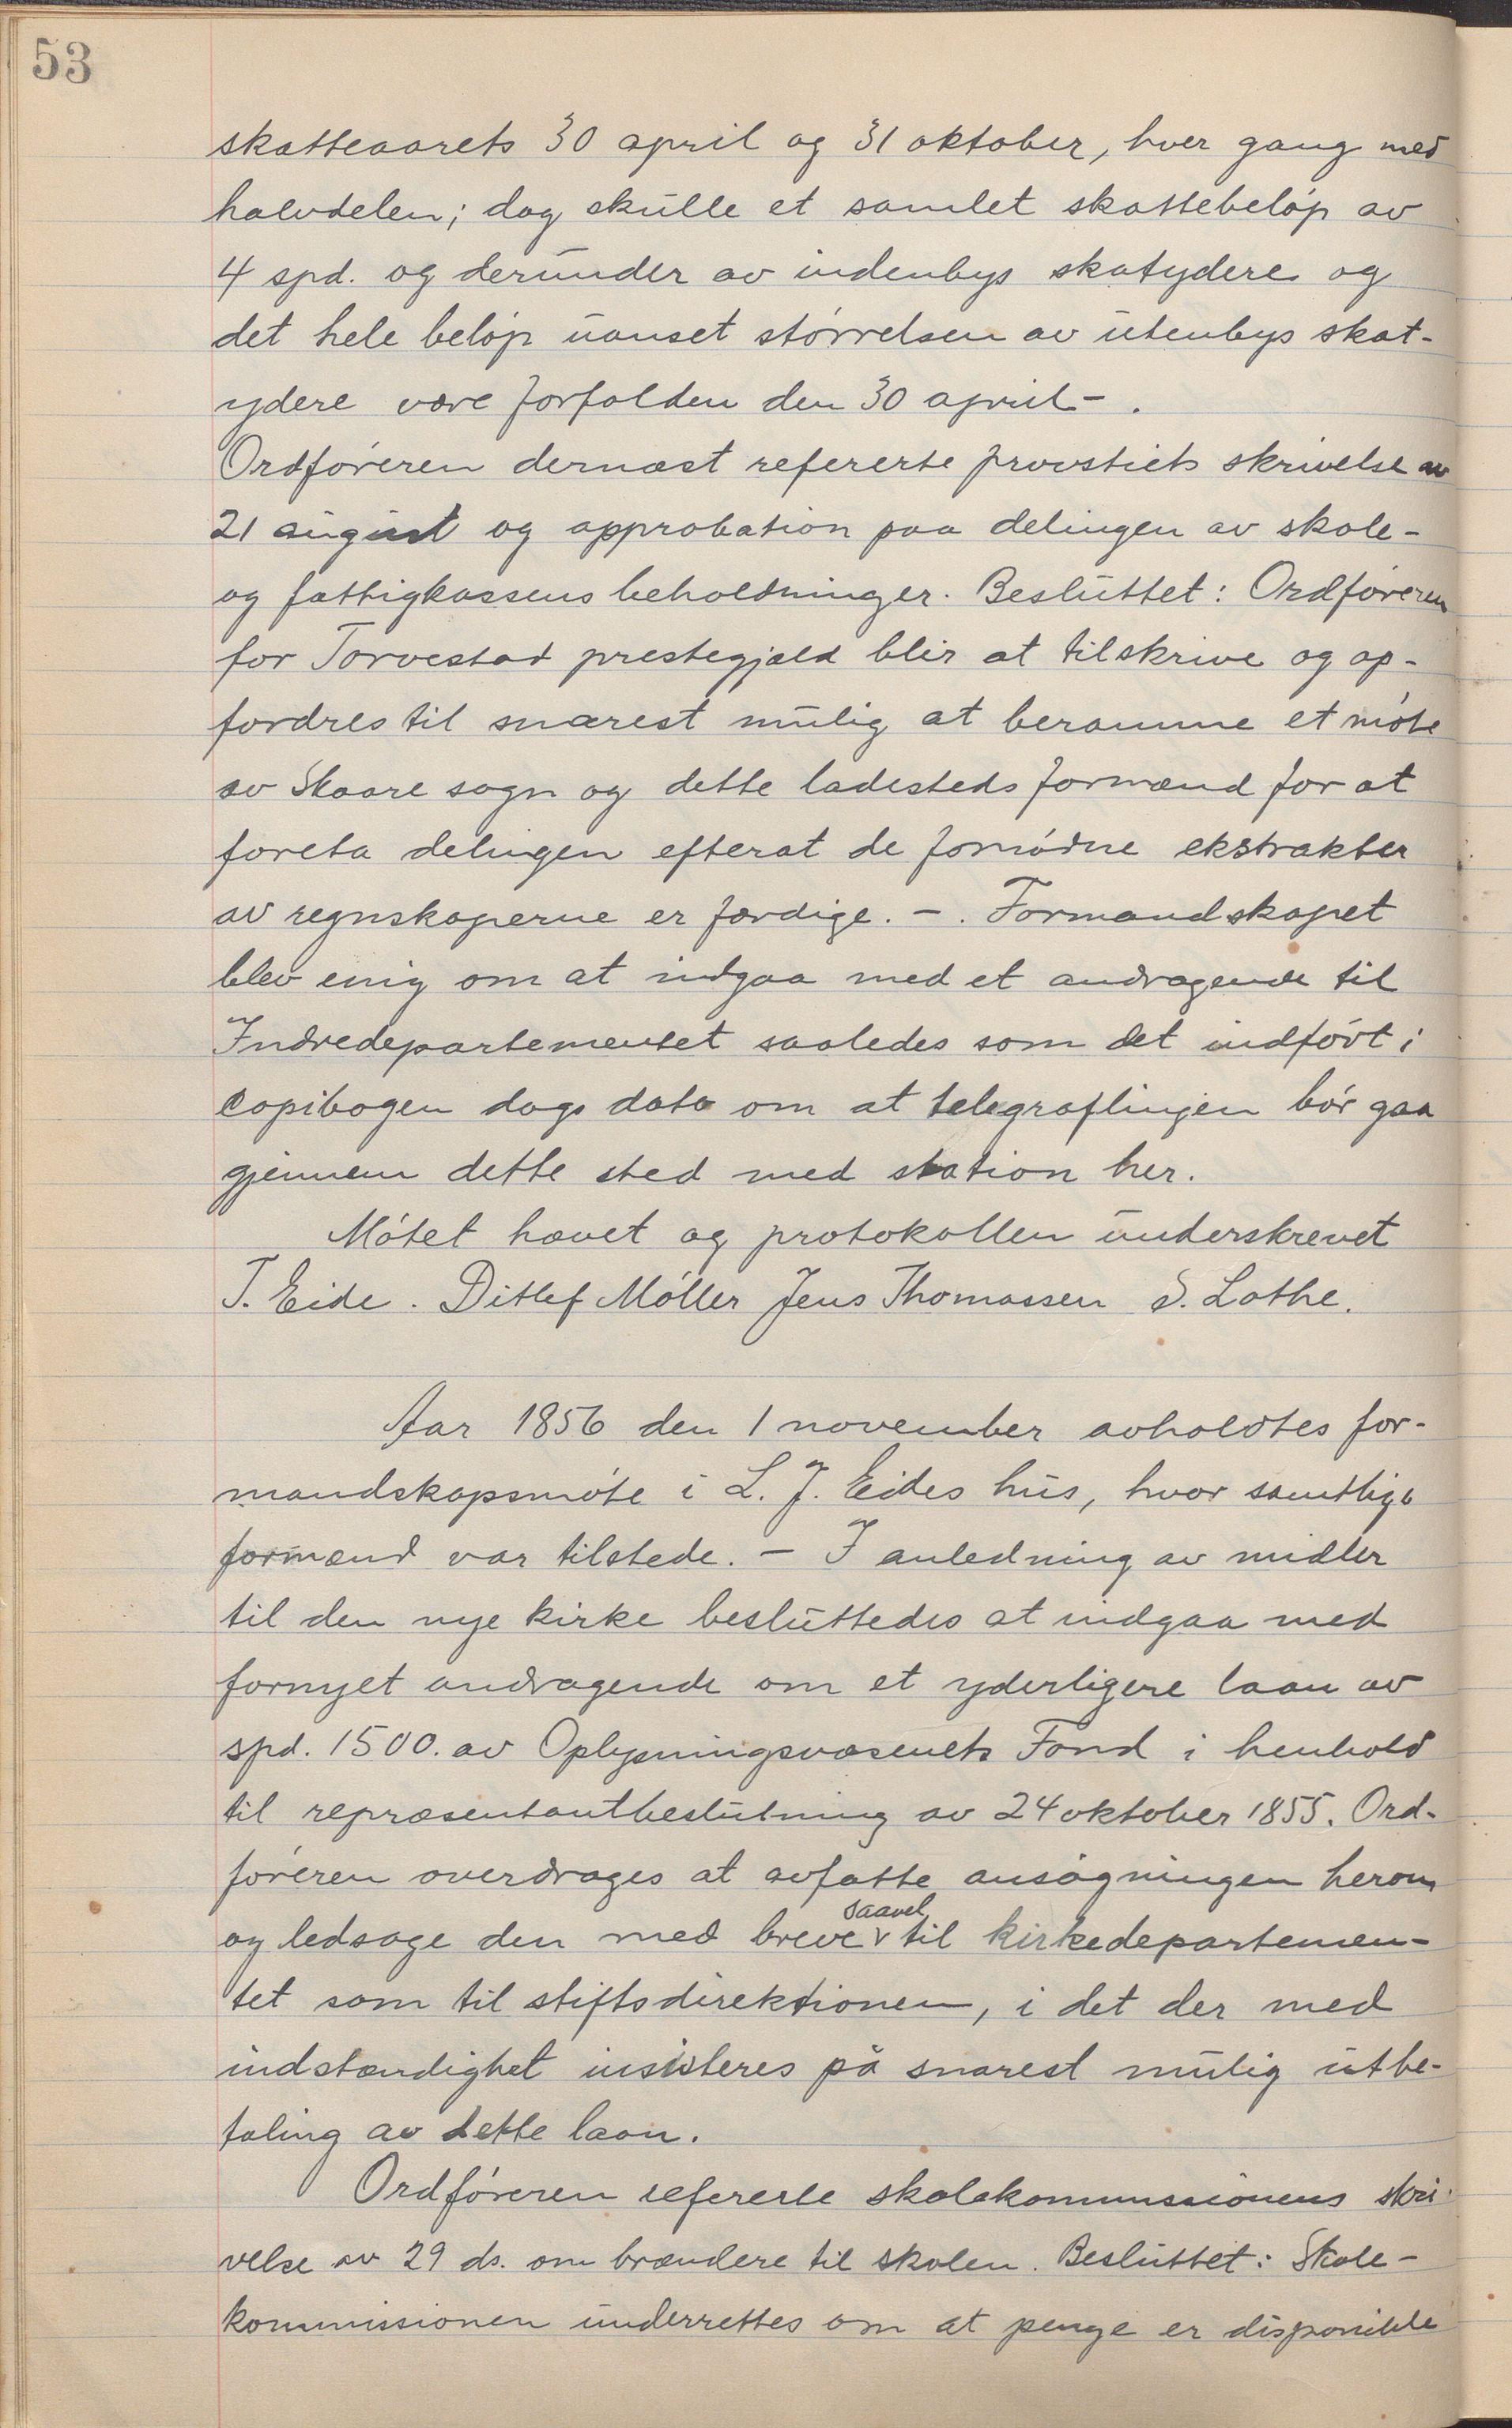 53
skatteaarets 30 april og 31 oktober, hver gang med
halvdelen; dog skulle et samlet skattebeløp av
4 spd. og derunder av indenbys skatydere og
det hele beløp uanset størrelsen av utenbys skat-
ydere være forfalden den 30 april - .
Ordføreren dernæst refererte provstiets skrivelse av
21 august og approbation paa delingen av skole-
og fattigkassens beholdninger. Besluttet: Ordføreren
for Torvestad prestegjæld blir at tilskrive og op-
fordres til snarest mulig at beramme et møte
av Skaare sogn og dette ladesteds formænd for at
foreta delingen efterat de fornødne ekstrakter
av regnskaperne er færdige. - . Formandskapet
blev enig om at indgaa med et andragende til
Indredepartementet saaledes som det indført i
copibogen dags dato om at telegraflinjen bør gaa
gjennem dette sted med station her.
Møtet hævet og protokollen underskrevet
T. Eide. Ditlef Møller Jens Thomassen S. Lothe.
Aar 1856 den 1 november avholdtes for-
mandskapsmøte i L. J. Eides hus, hvor samtlige
formænd var tilstede. - I anledning av midler
til den nye kirke besluttedes at indgaa med
fornyet andragende om et yderligere laan av
spd. 1500. av Oplysningsvæsenets Fond i henhold
til repræsentantbeslutning av 24 oktober 1855. Ord-
føreren overdrages at avfatte ansøgningen herom
og ledsage den med breve saavel til kirkedepartemen-
tet som til stiftsdirektionen, i det der med
indstændighet insisteres på snarest mulig utbe-
taling av dette laan.
Ordføreren refererte skolekommissionens skri-
velse av 29 ds. om brændere til skolen. Besluttet: Skole-
kommissionen underrettes om at penge er disponible